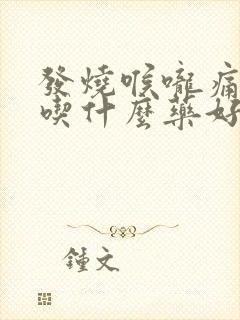 發燒喉嚨痛
喫什麼藥好
鍾文